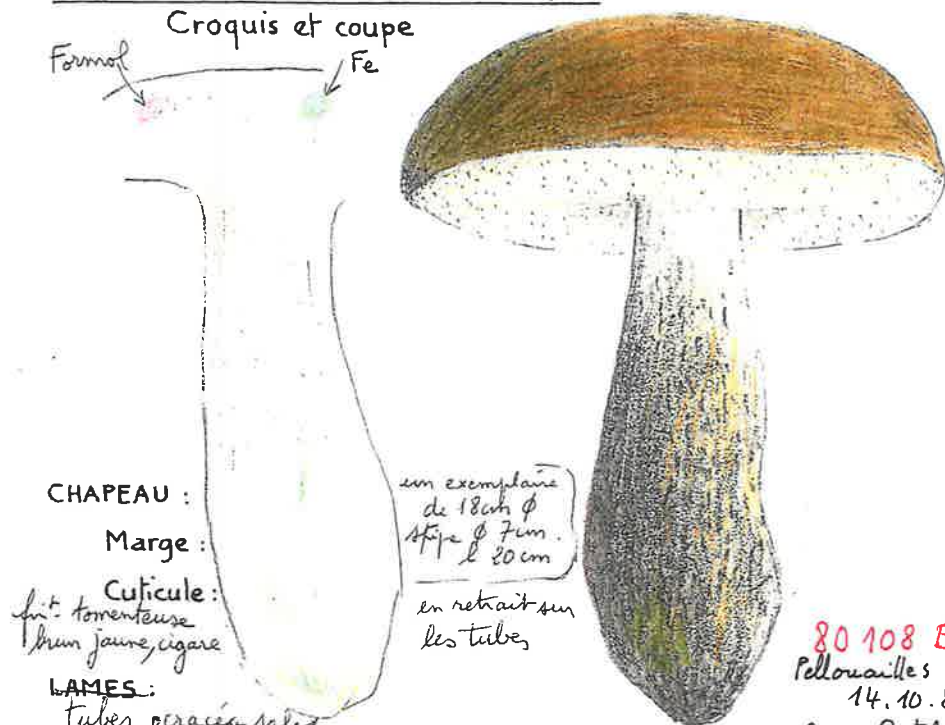 Croquis et coupe
Formol
Fe
CHAPEAU :
Marge :
Cuticule :
tomenteuse
brun jaune, cigare
LAMES :
tubes
un exemplaire
de 18cm ϕ
stipe ϕ 7cm.
l 20cm
en retrait sur
les tubes
80 108
Pellouailles
14.10.